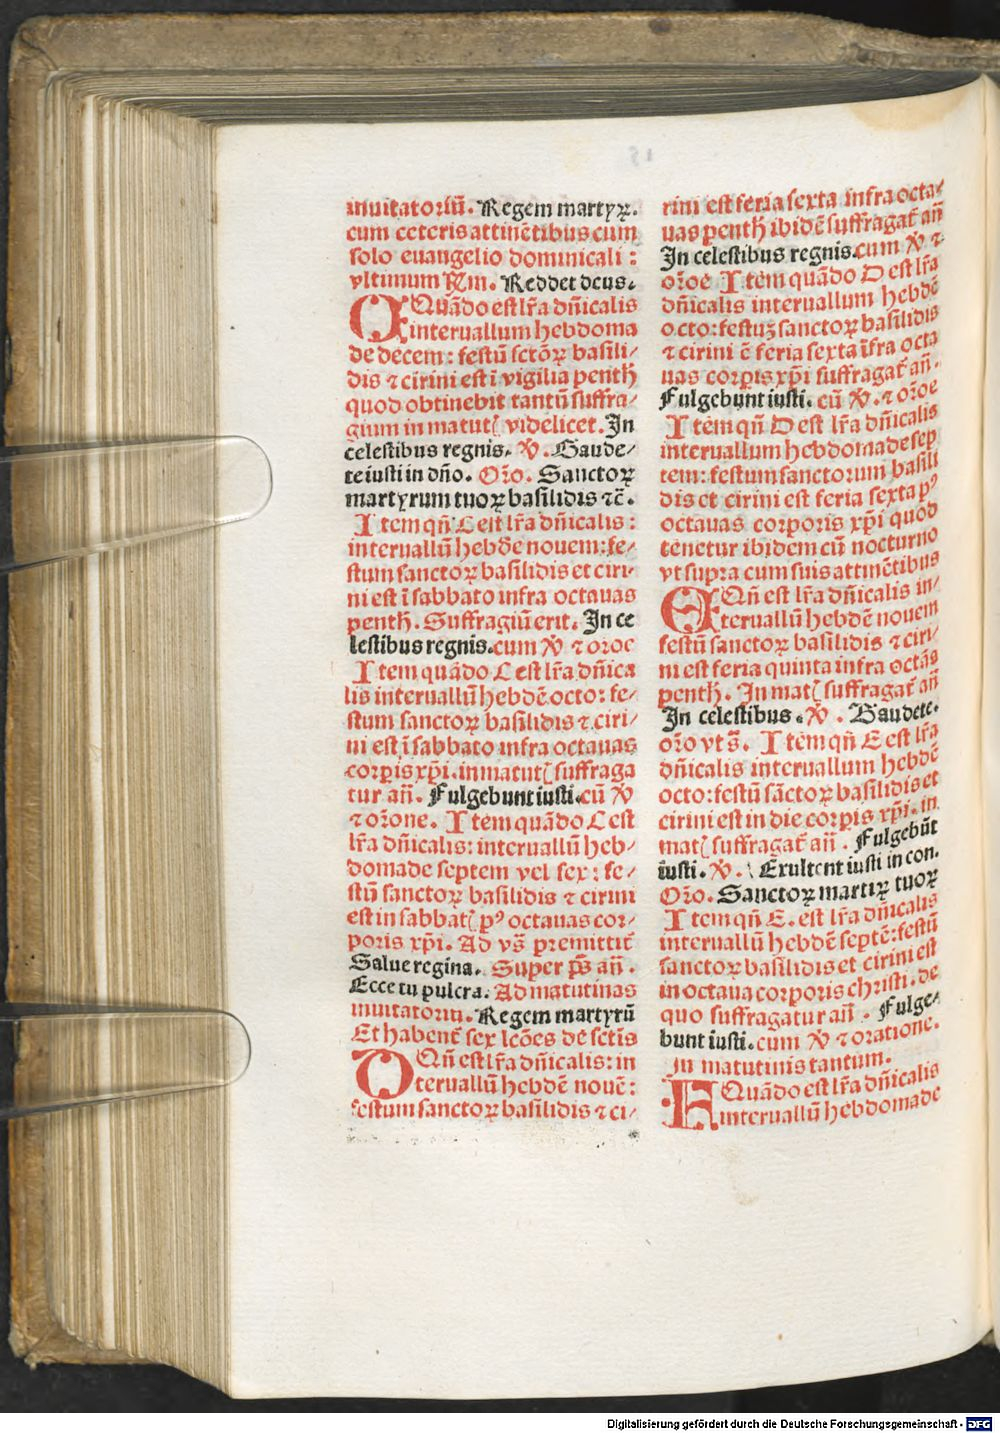 inuitatoriū. Regem martyꝝ.
cum ceteris attinētibus cum
solo euangelio dominicali :
vltimum ℟m. Reddet deus.
Quādo est lr̄a dn̄icalis
interuallum hebdoma
de decem : festū sctōꝝ basili/
dis ⁊ cirini est ī vigilia penth̄
quod obtinebit tantū suffra/
gium in matut̄ videlicet. In
celestibus regnis. ℣. Gaude/
te iusti in dn̄o. Oŕo. Sanctoꝝ
martyrum tuoꝝ basilidis ⁊c̄.
Item qn̄ C est lr̄a dn̄icalis :
interuallū hebdōe nouem: fe/
stum sanctoꝝ basilidis et ciri/
ni est ī sabbato infra octauas
penth̄. Suffragiū erit. In ce
lestibus regnis. cum ℣ ⁊ oroe
Item quādo C est lr̄a dn̄ica
lis interuallū hebdē octo: fe/
stum sanctoꝝ basilidis ⁊ ciri/
ni est ī sabbato infra octauas
corpis xp̄i. in matut̄ suffraga
tur an̄. Fulgebunt iusti. cū ℣
⁊ orōne. Item quādo C est
lr̄a dn̄icalis: interuallū heb/
domade septem vel sex : fe/
stū sanctoꝝ basilidis ⁊ cirini
est in sabbat̄ pꝰ octauas cor/
poris xp̄i. Ad vs̄ premittit̄
Salue regina. Super p̄s an̄.
Ecce tu pulcra. Ad matutinas
inuitatoriū. Regem martyrū
Et habent̄ sex lcōes de sctīs
D Qn̄ est lr̄a dn̄icalis: in
teruallū hebdē nouē :
festum sanctoꝝ basilidis ⁊ ci/
rini est feria sexta infra octa/
uas penth̄ ibidē suffragat̄ an̄
In celestibus regnis. cum ℣ ⁊
orōe Item quādo D est lr̄a
dn̄icalis interuallum hebdē
octo: festuꝫ sanctoꝝ basilidis
⁊ cirini ē feria sexta īfra octa
uas corpis xp̄i suffragat̄ an̄.
Fulgebunt iusti. cū ℣. ⁊ orōe
Item qn̄ D est lr̄a dn̄icalis
interuallum hebdomade sep
tem: festum sanctorum basili
dis et cirini est feria sexta pꝰ
octauas corporis xp̄i quod
tenetur ibidem cū nocturno
vt supra cum suis attinētibus
E Qn̄ est lr̄a dn̄icalis in/
teruallū hebdē nouem
festū sanctoꝝ basilidis ⁊ ciri/
ni est feria quinta infra octās
penth̄. In mat̄ suffragat̄ an̄
In celestibus. ℣. Gaudete.
orō vt s̄. Item qn̄ E est lr̄a
dn̄icalis interuallum hebdē
octo: festū sāctoꝝ basilidis et
cirini est in die corpis xp̄i. in
mat̄ suffragat̄ an̄. Fulgebūt
iusti. ℣. Exultent iusti in con.
Orō. Sanctoꝝ martiꝝ tuoꝝ
Item qn̄ E. est lr̄a dn̄icalis
interuallū hebdē septē: festū
sanctoꝝ basilidis et cirini est
in octaua corporis christi. de
quo suffragatur an̄. Fulge/
bunt iusti. cum ℣ ⁊ oratione.
in matutinis tantum.
F Quādo est lr̄a dn̄icalis
interuallū hebdomade
Digitalisierung gefördert durch die Deutsche Forschungsgemeinschaft - DFG